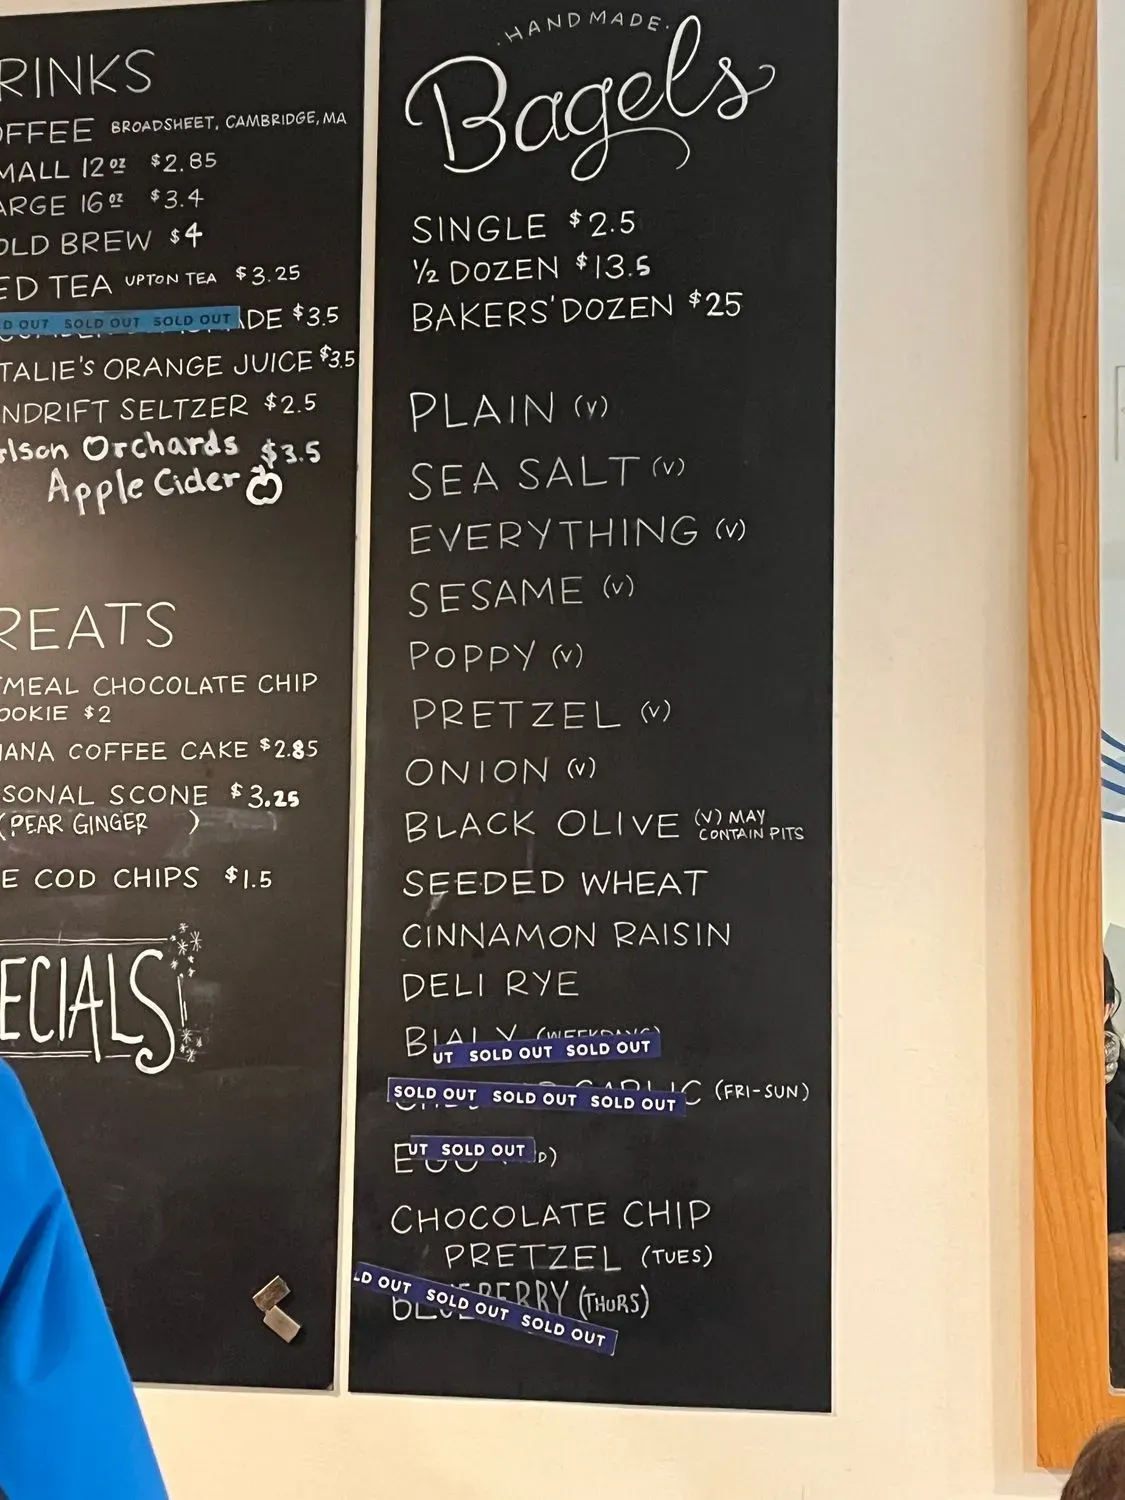 RINKS
OFFEE BROADSHEET, CAMBRIDGE, MA
MALL 12oz $2.85
ARGE 16oz $3.4
OLD BREW $4
ED TEA UPTON TEA $3.25
D OUT SOLD OUT SOLD OUT ADE $3.5
TALIE'S ORANGE JUICE $3.5
NDRIFT SELTZER $2.5
lson Orchards $3.5
Apple Cider
REATS
MEAL CHOCOLATE CHIP
OOKIE $2
ANA COFFEE CAKE $2.85
SONAL SCONE $3.25
(PEAR GINGER )
E COD CHIPS $1.5
ECIALS
·HANDMADE·
Bagels
SINGLE $2.5
1/2 DOZEN $13.5
BAKERS' DOZEN $25
PLAIN (V)
SEA SALT (V)
EVERYTHING (V)
SESAME (V)
POPPY (V)
PRETZEL (V)
ONION (V)
BLACK OLIVE (V) MAY
CONTAIN PITS
SEEDED WHEAT
CINNAMON RAISIN
DELI RYE
BIALY (WEEKDAYS)
UT SOLD OUT SOLD OUT
SOLD OUT SOLD OUT SOLD OUT GARLIC (FRI-SUN)
EGG D)
UT SOLD OUT
CHOCOLATE CHIP
PRETZEL (TUES)
BLUEBERRY (THURS)
LD OUT SOLD OUT SOLD OUT